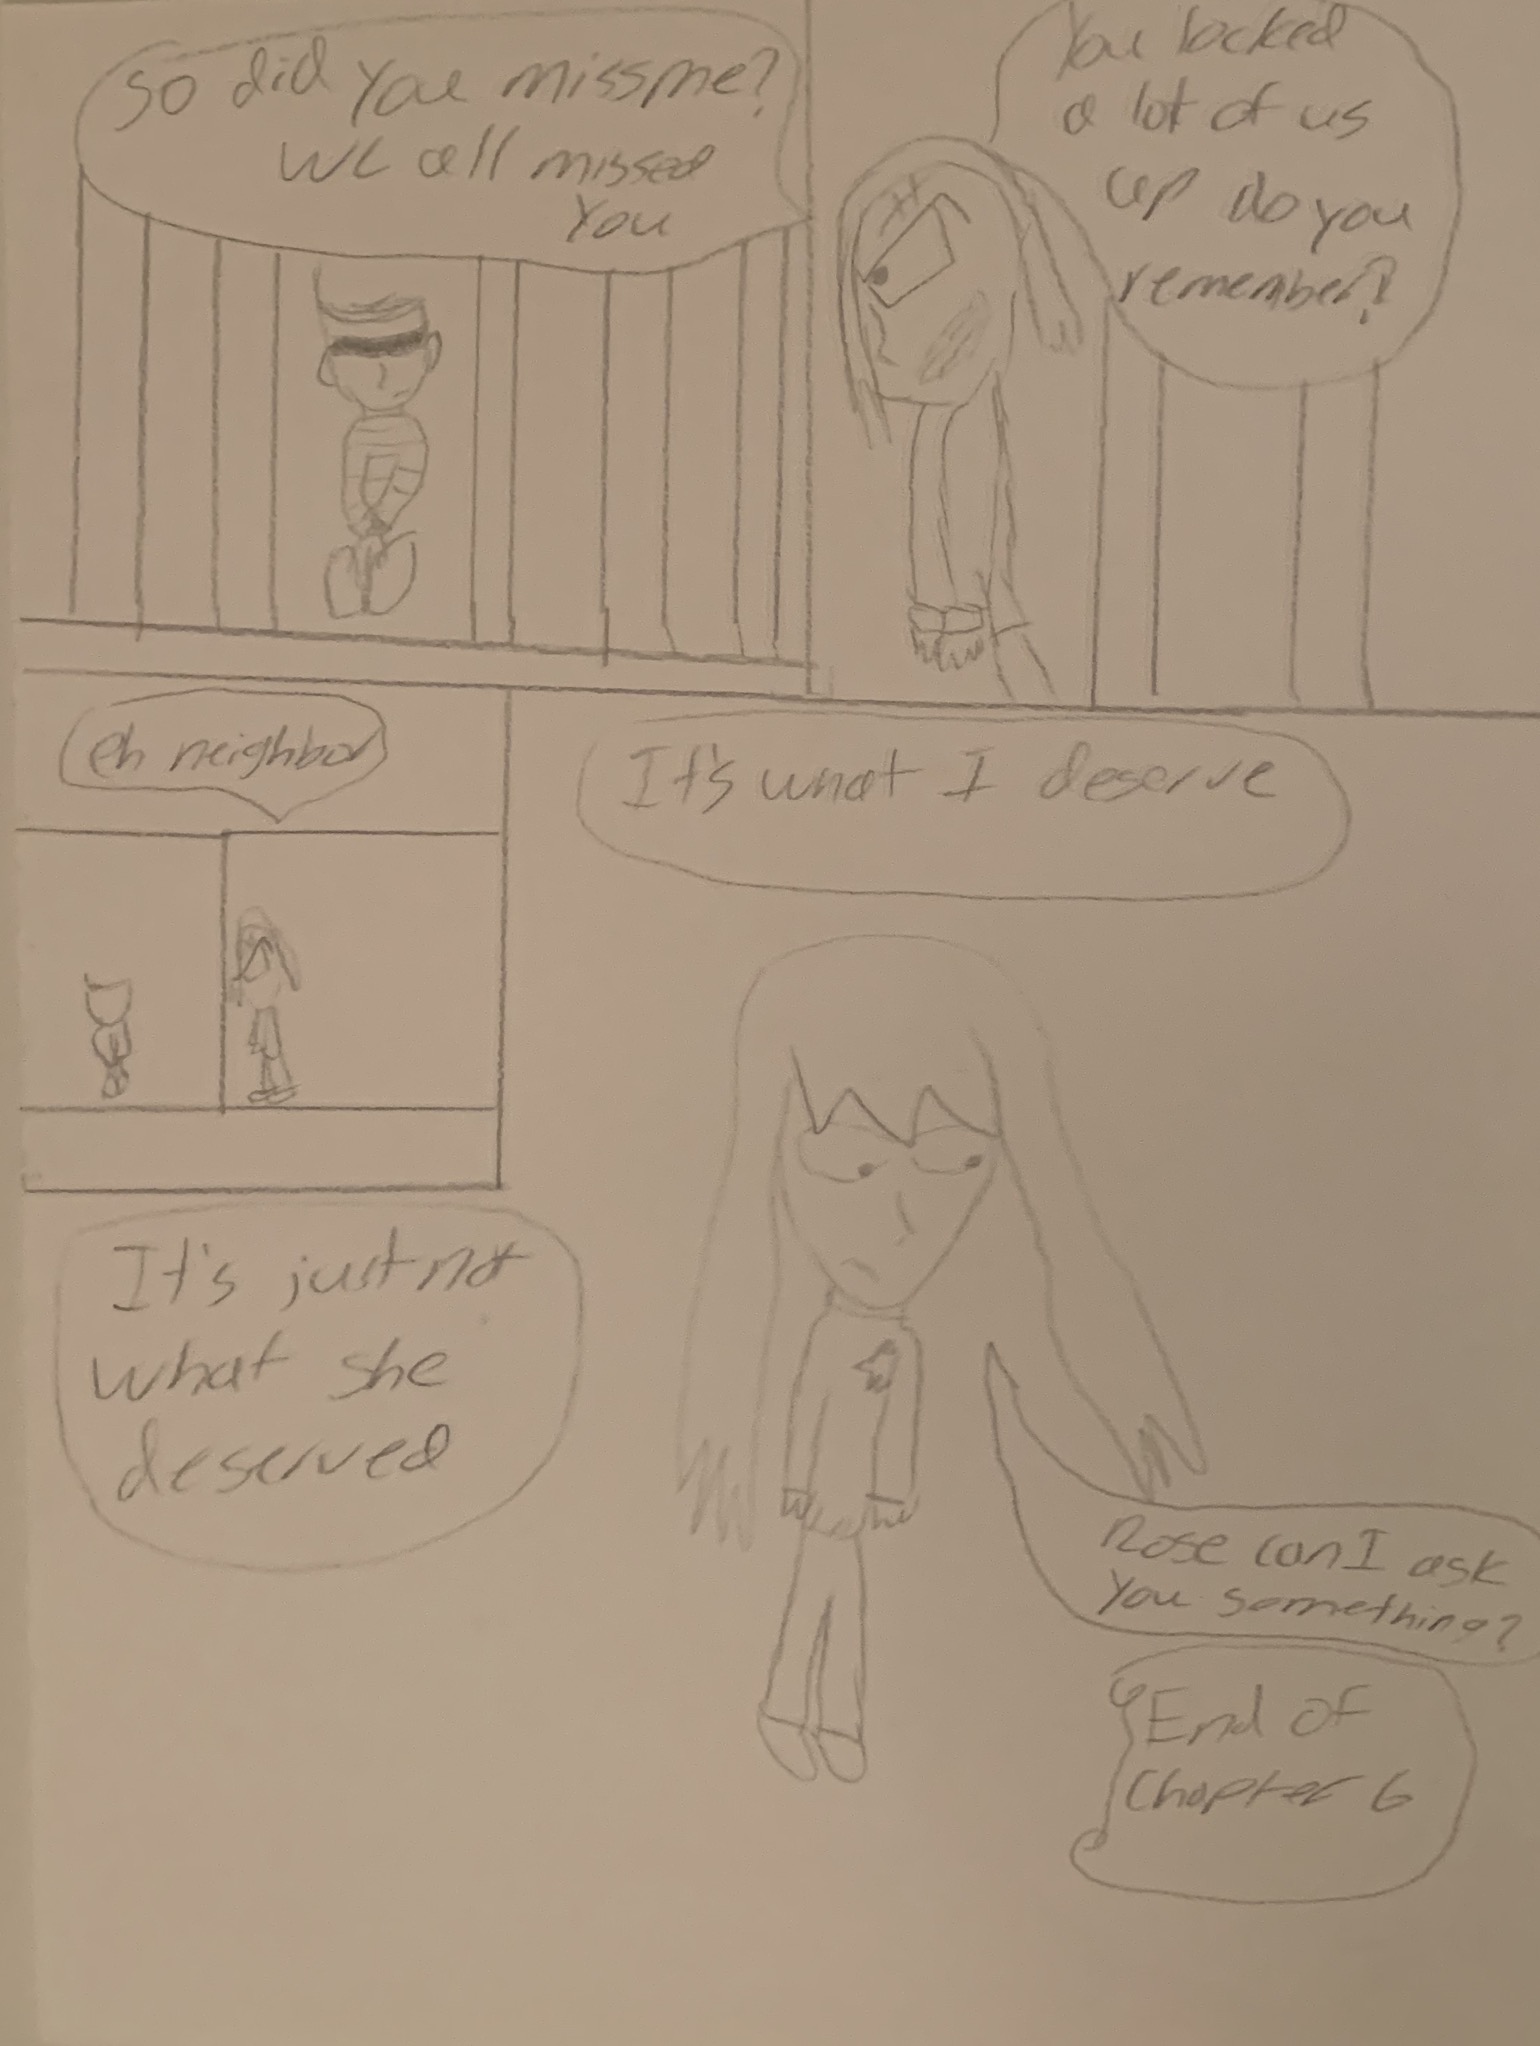 So did you miss me?
We all missed
you
You locked
a lot of us
up do you
remember?
eh neighbor
It's what I deserve
It's just not
what she
deserved
Rose can I ask
you something?
End of
Chapter 6